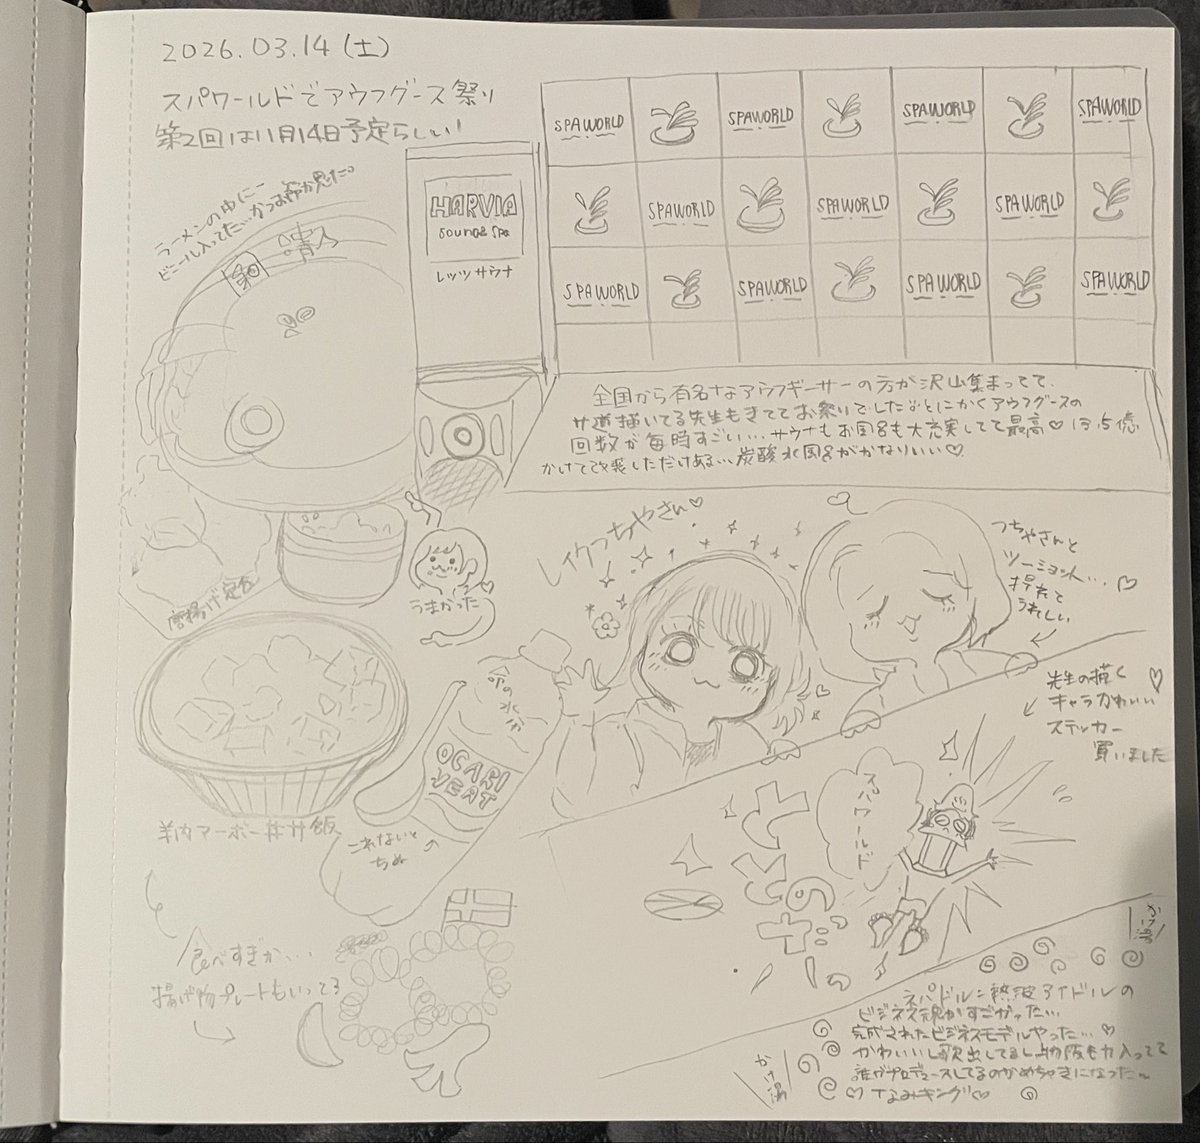 2026.03.14(土)
スパワールドでアウフグース祭り
第2回は11月14日予定らしい!
ラーメンの中にー
ビニール入ってた…かつお節か思た。
HARVIA
sauna & spa
レッツサウナ
SPAWORLD
SPAWORLD
SPAWORLD
SPAWORLD
SPAWORLD
SPAWORLD
SPAWORLD
SPAWORLD
SPAWORLD
SPAWORLD
SPAWORLD
全国から有名なアウフギーサーの方が沢山集まってて、
サ道描いてる先生もきててお祭りでした。とにかくアウフグースの
回数が毎時すごい…サウナもお風呂も大充実してて最高♡13.5億
かけて改装しただけある…炭酸水風呂がかなりいい♡
唐揚げ定食
うまかった
レイクつちやさん♡
つちやさんと
ツーショット…
撮れて
うれしい
♡
先生の描く
キャラかわいい
ステッカー
買いました
命の水が
OCARI
VEAT
これないと
ちぬ
羊肉マーボー丼
食べすぎか、…
揚げ物プレートもいってる
スパワールド
ととのった
かけ湯
かけ湯
ネパドル:熱波アイドルの
ビジネス魂がすごかった…
完成されたビジネスモデルやった…♡
かわいいし歌出してるし物販も力入ってて
誰がプロデュースしてるのかめちゃ気になった〜
♡なみキング♡